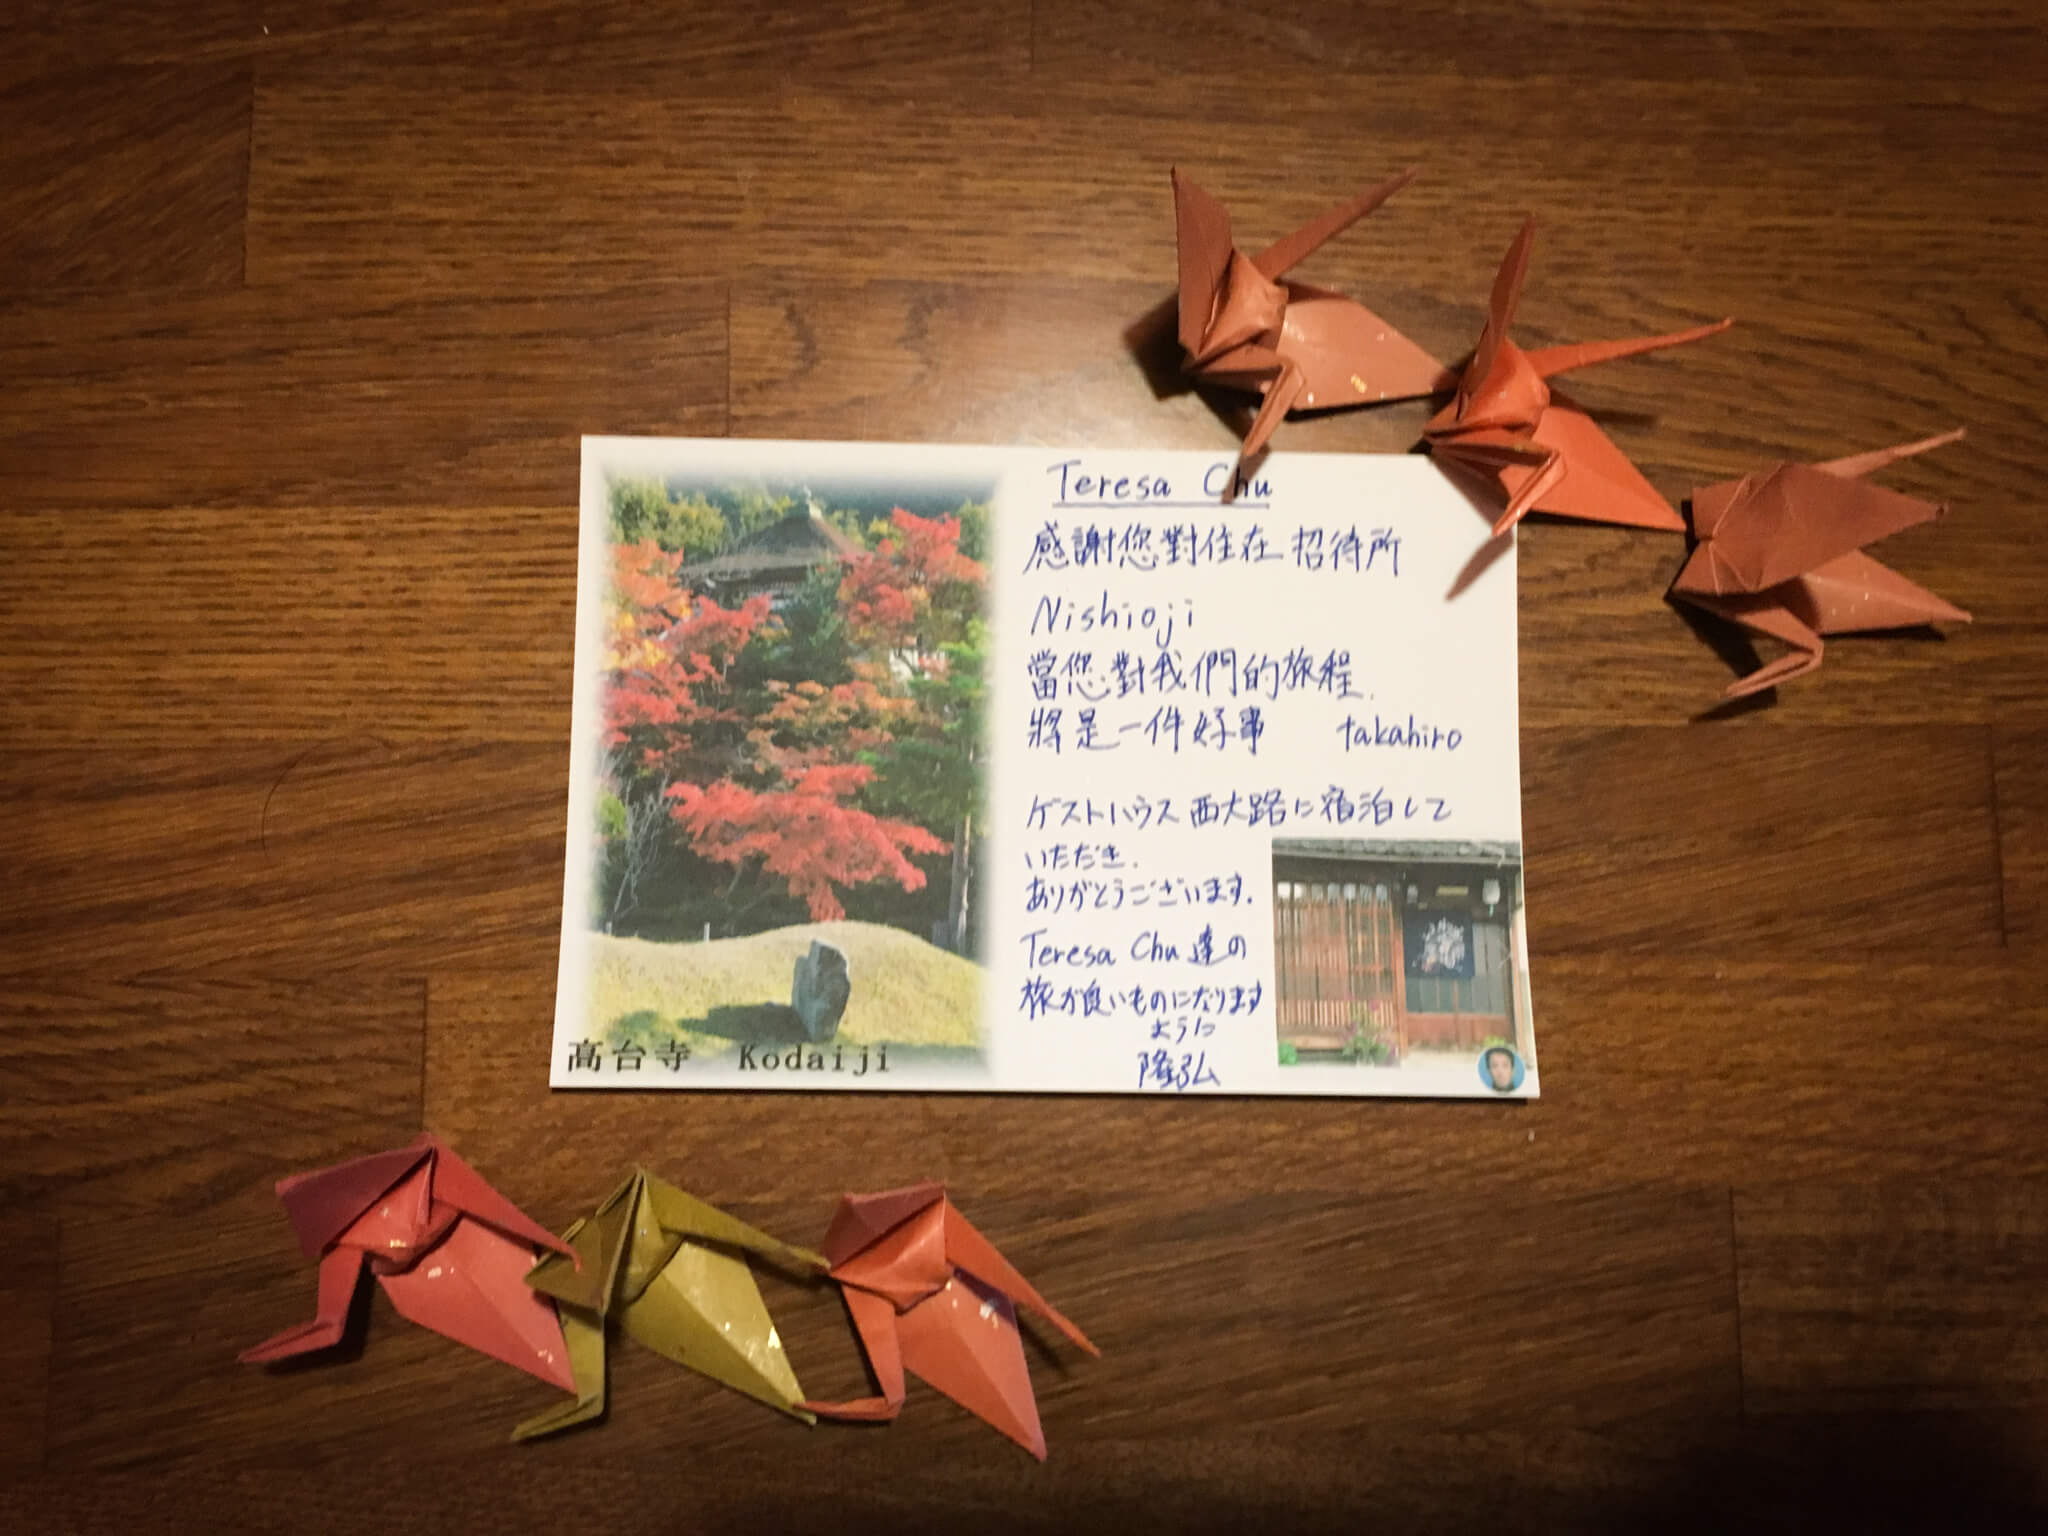 Teresa Chu
感謝您對住在招待所
Nishioji
當您對我們的旅程.
將是一件好事 takahiro
ゲストハウス西大路に宿泊して
いただき.
ありがとうございます.
Teresa Chu達の
旅が良いものになります
ように
隆弘
高台寺 Kodaiji